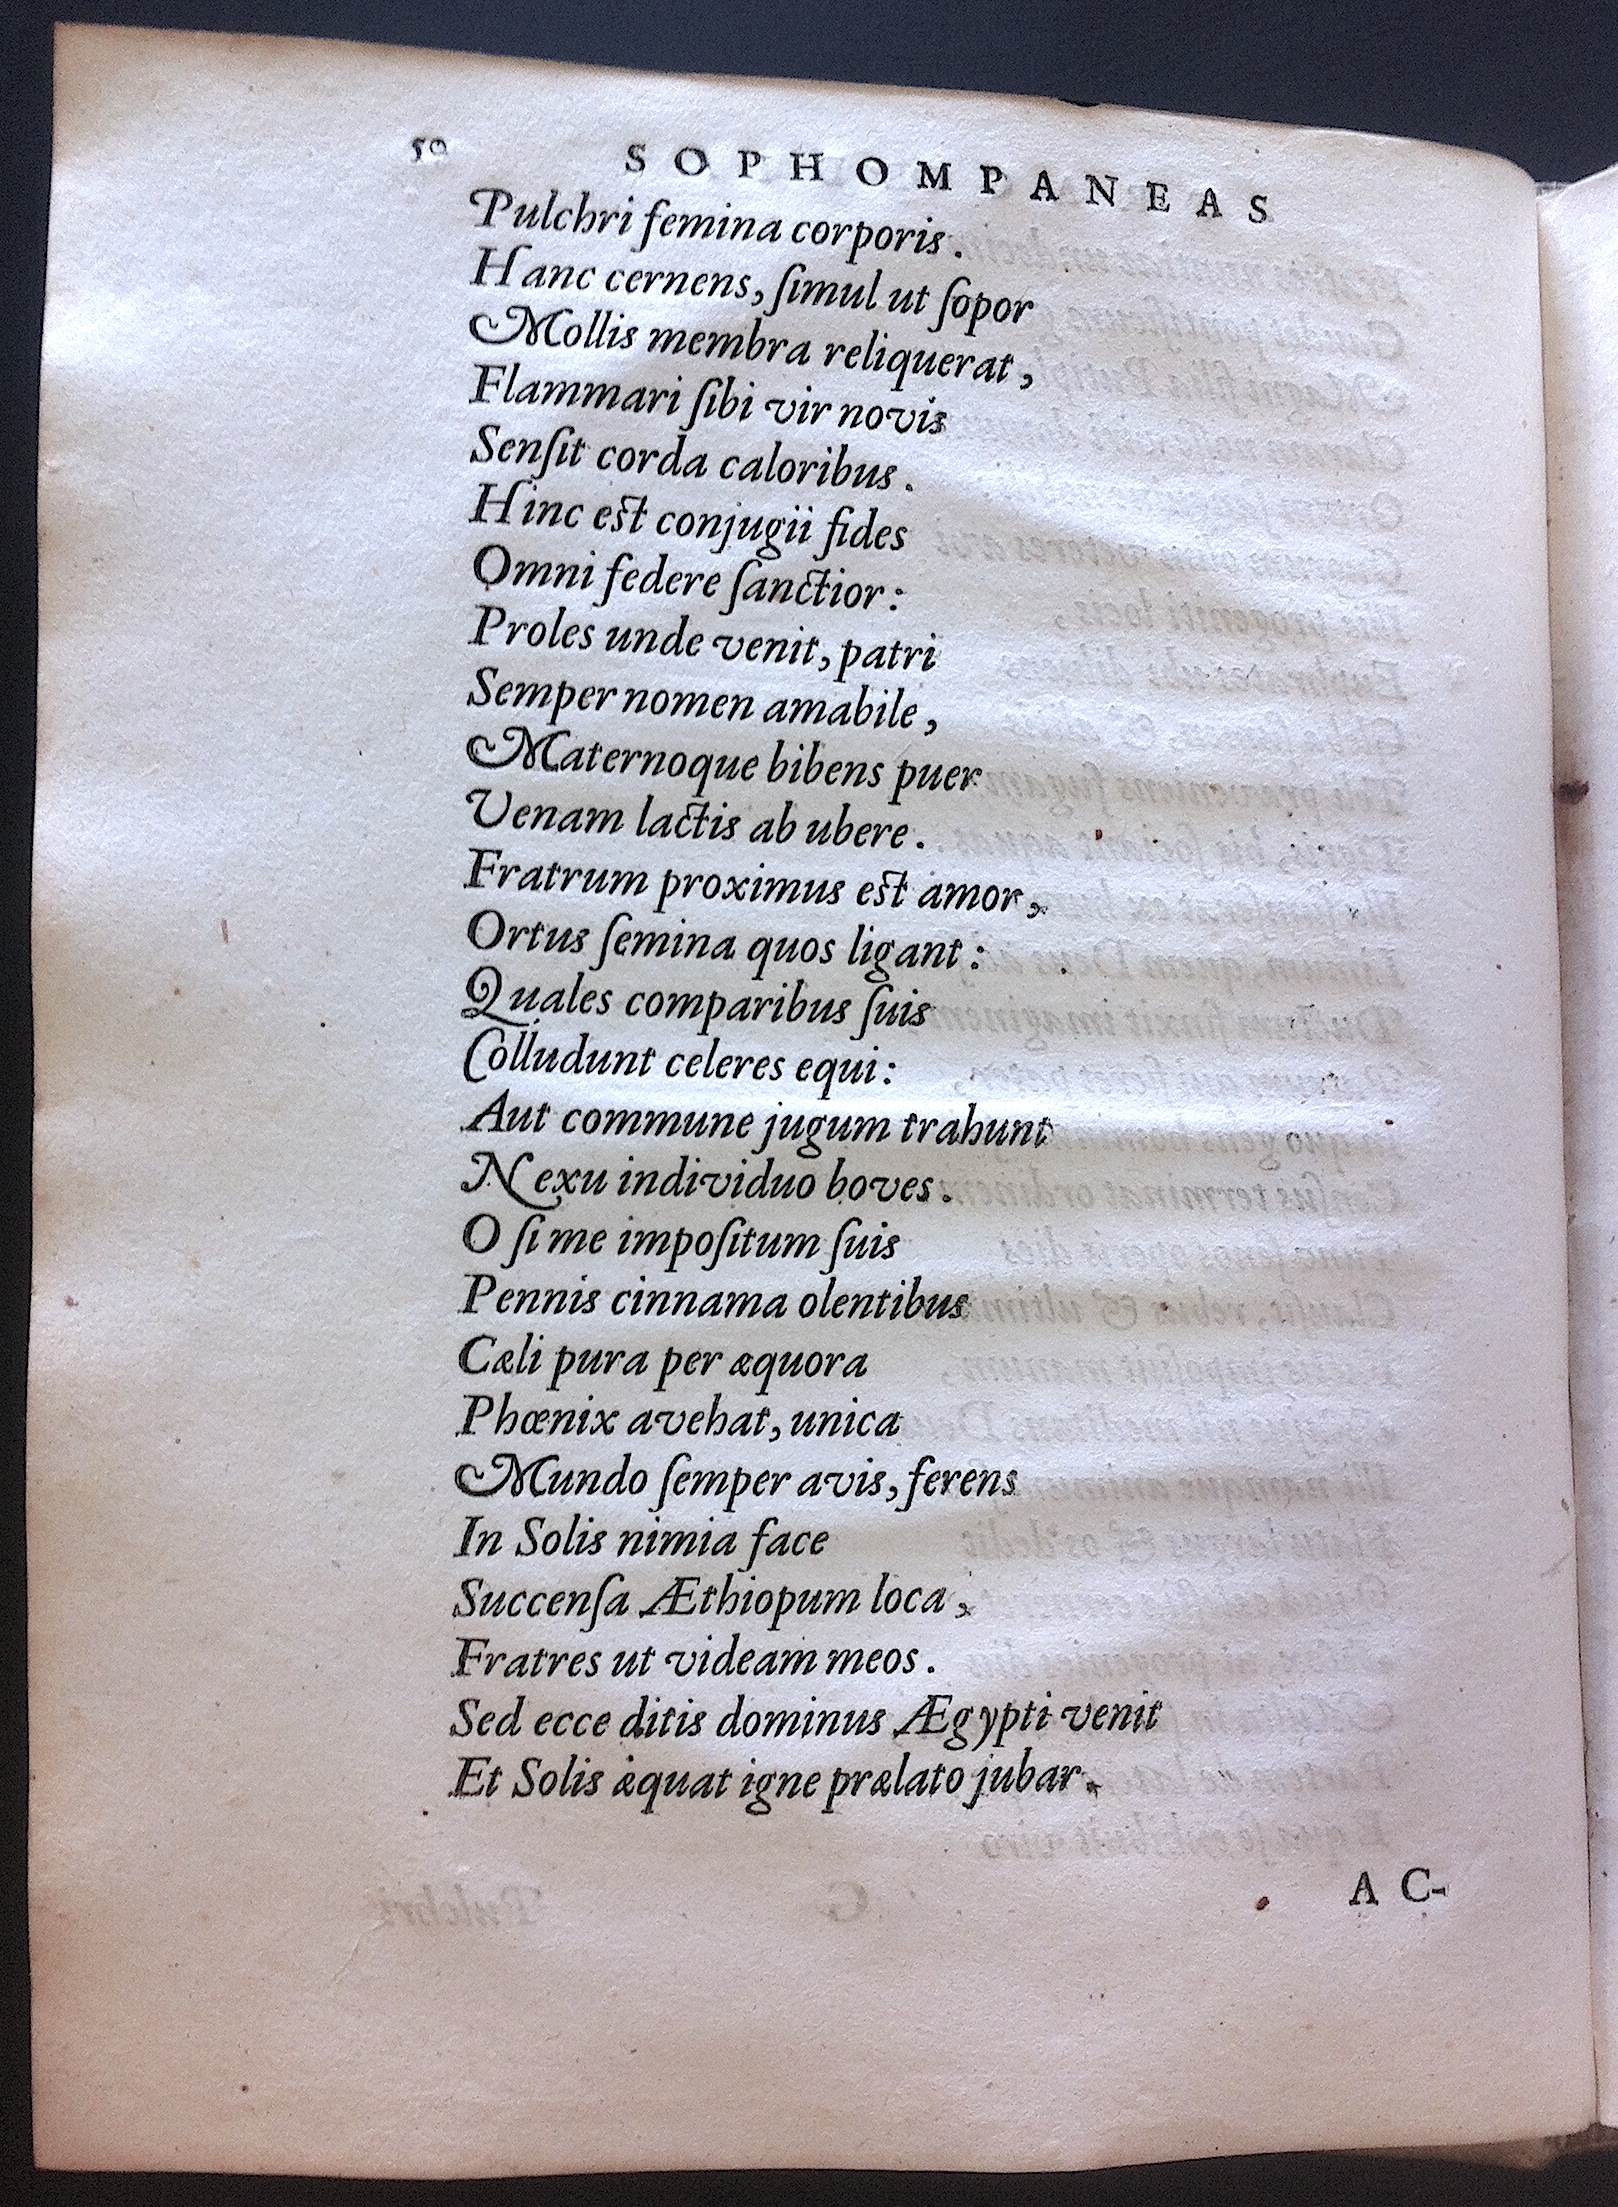 50 SOPHOMPANEAS
Pulchri femina corporis.
Hanc cernens, ſimul ut ſopor
Mollis membra reliquerat,
Flammari ſibi vir novis
Senſit corda caloribus.
Hinc est conjugii fides
Omni federe ſanctior:
Proles unde venit, patri
Semper nomen amabile,
Maternoque bibens puer
Venam lactis ab ubere.
Fratrum proximus est amor,
Ortus ſemina quos ligant:
Quales comparibus ſuis
Colludunt celeres equi:
Aut commune jugum trahunt
Nexu individuo boves.
O ſi me impoſitum ſuis
Pennis cinnama olentibus
Cæli pura per æquora
Phœnix avehat, unica
Mundo ſemper avis, ferens
In Solis nimia face
Succenſa Æthiopum loca,
Fratres ut videam meos.
Sed ecce ditis dominus Ægypti venit
Et Solis æquat igne prælato jubar.
AC-